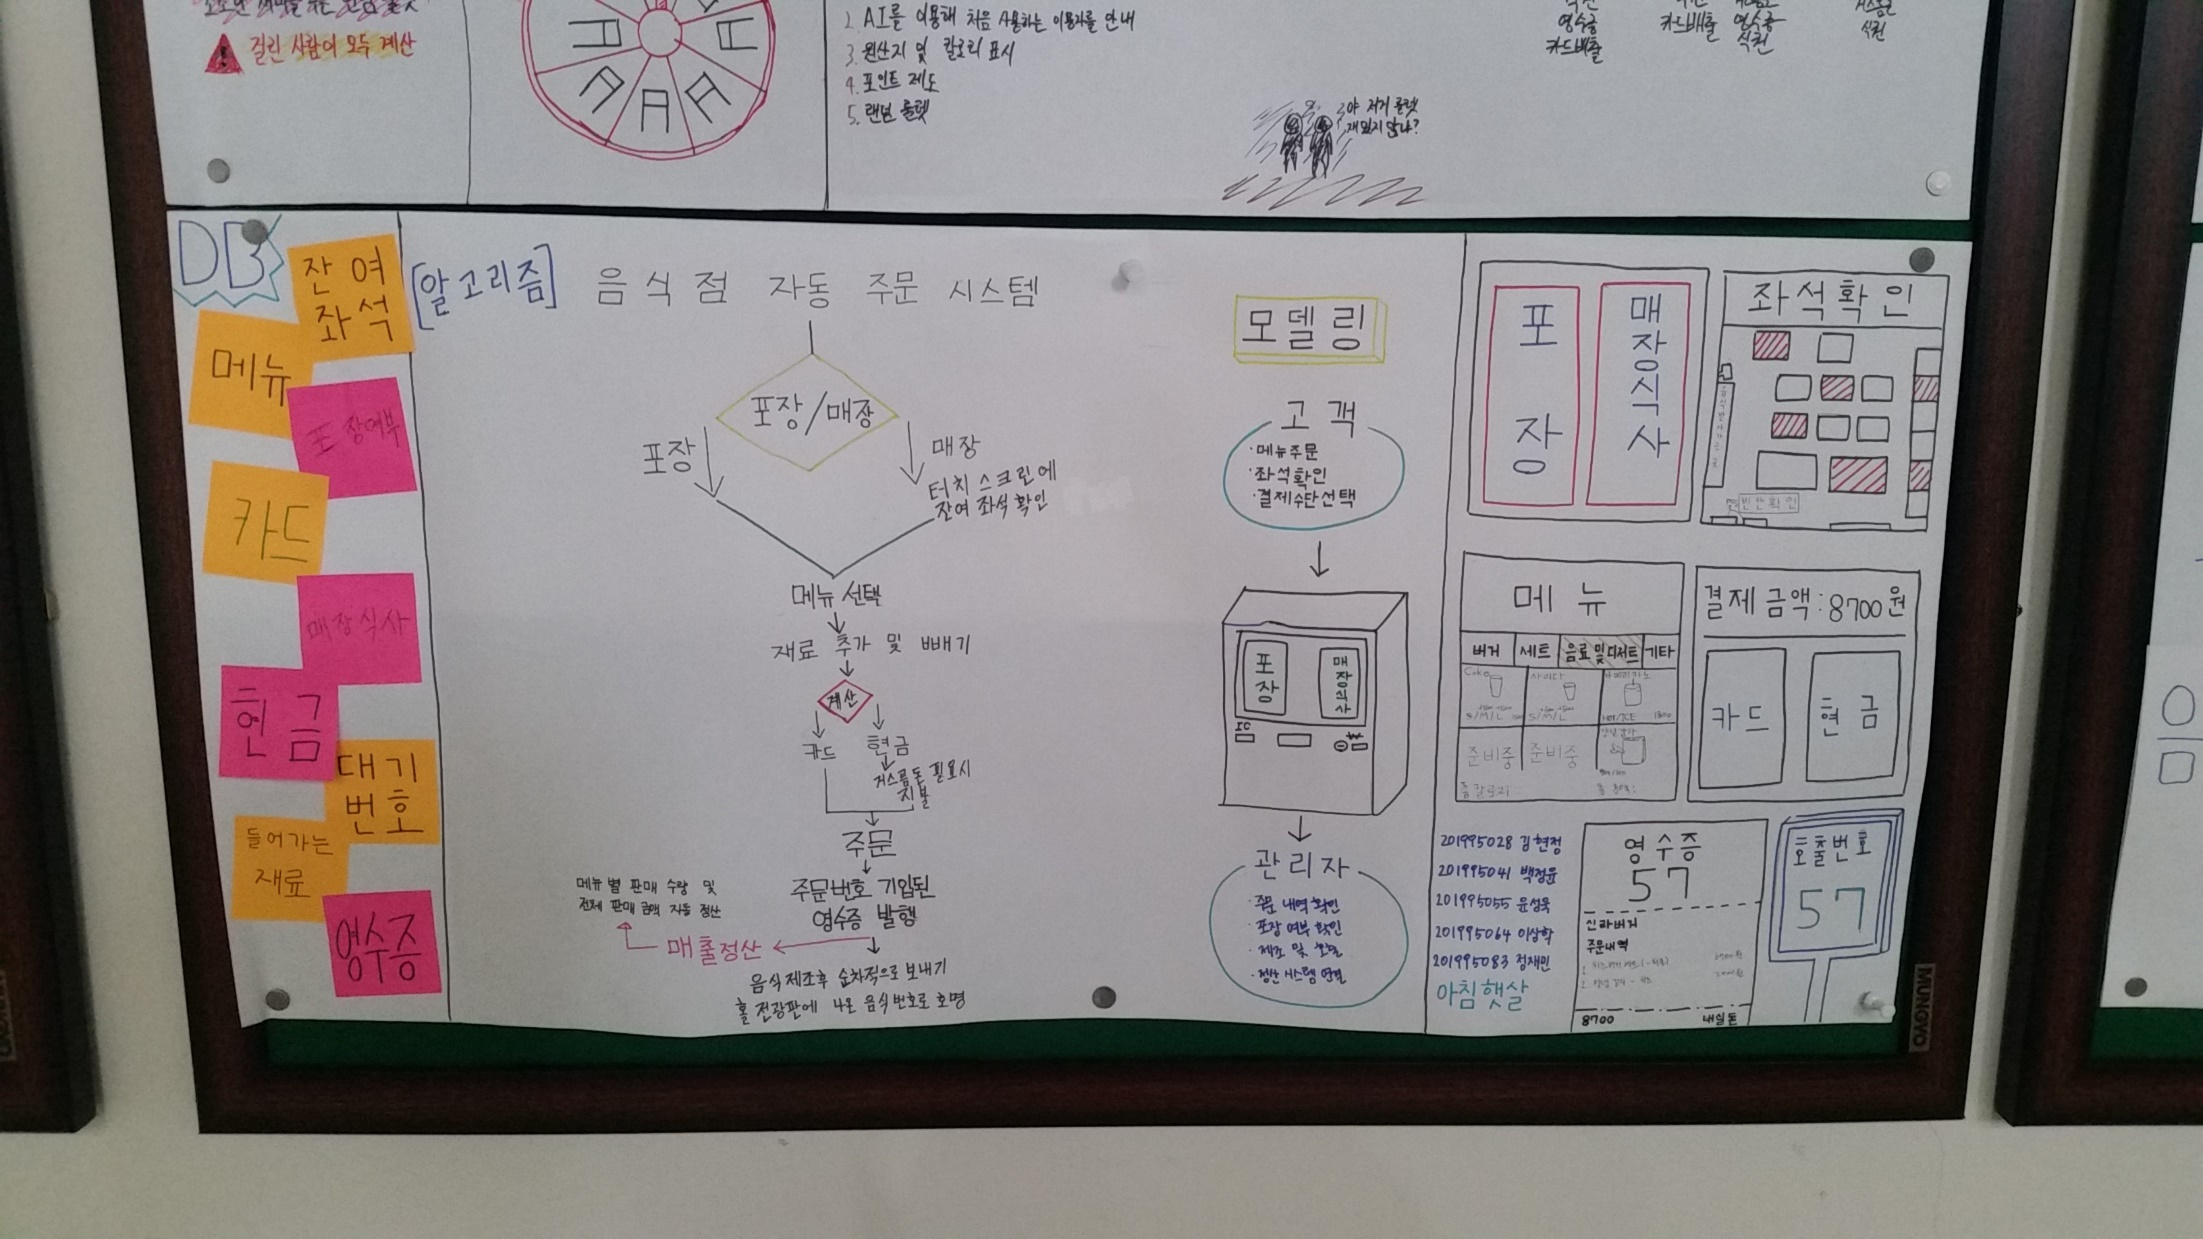 걸린 사람이 모두 계산
2. AI를 이용해 처음 사용하는 이용자를 안내
3. 원산지 및 칼로리 표시
4. 포인트 제도
5. 랜덤 룰렛
영수증
카드배출
카드배출
영수증
식권
식권
야 저거 룰렛
재밌지 않냐?
DB
잔여
좌석
메뉴
포장여부
카드
매장식사
현금
대기
번호
들어가는
재료
영수증
[알고리즘] 음식점 자동 주문 시스템
포장/매장
포장
매장
터치 스크린에
잔여 좌석 확인
메뉴 선택
재료 추가 및 빼기
계산
카드
현금
거스름돈 필요시
지불
주문
주문번호 기입된
영수증 발행
매출정산
메뉴 별 판매 수량 및
전체 판매 금액 자동 정산
음식 제조후 순차적으로 보내기
홀 전광판에 나온 음식번호로 호명
모델링
고객
·메뉴주문
·좌석확인
·결제수단선택
포장
매장식사
IC
관리자
·주문 내역 확인
·포장 여부 확인
·제조 및 호출
·정산 시스템 연결
포장
매장식사
좌석확인
메뉴
버거 세트 음료 및 디저트 기타
Coke
사이다
S/M/L
S/M/L
HOT/ICE
준비중
준비중
총 칼로리
결제 금액:8700원
카드
현금
201995028 김현정
201995041 백정윤
201995055 윤성욱
201995064 이상학
201995083 정재민
아침햇살
영수증
57
신라버거
주문내역
8700 내실돈
호출번호
57
MUNGYO